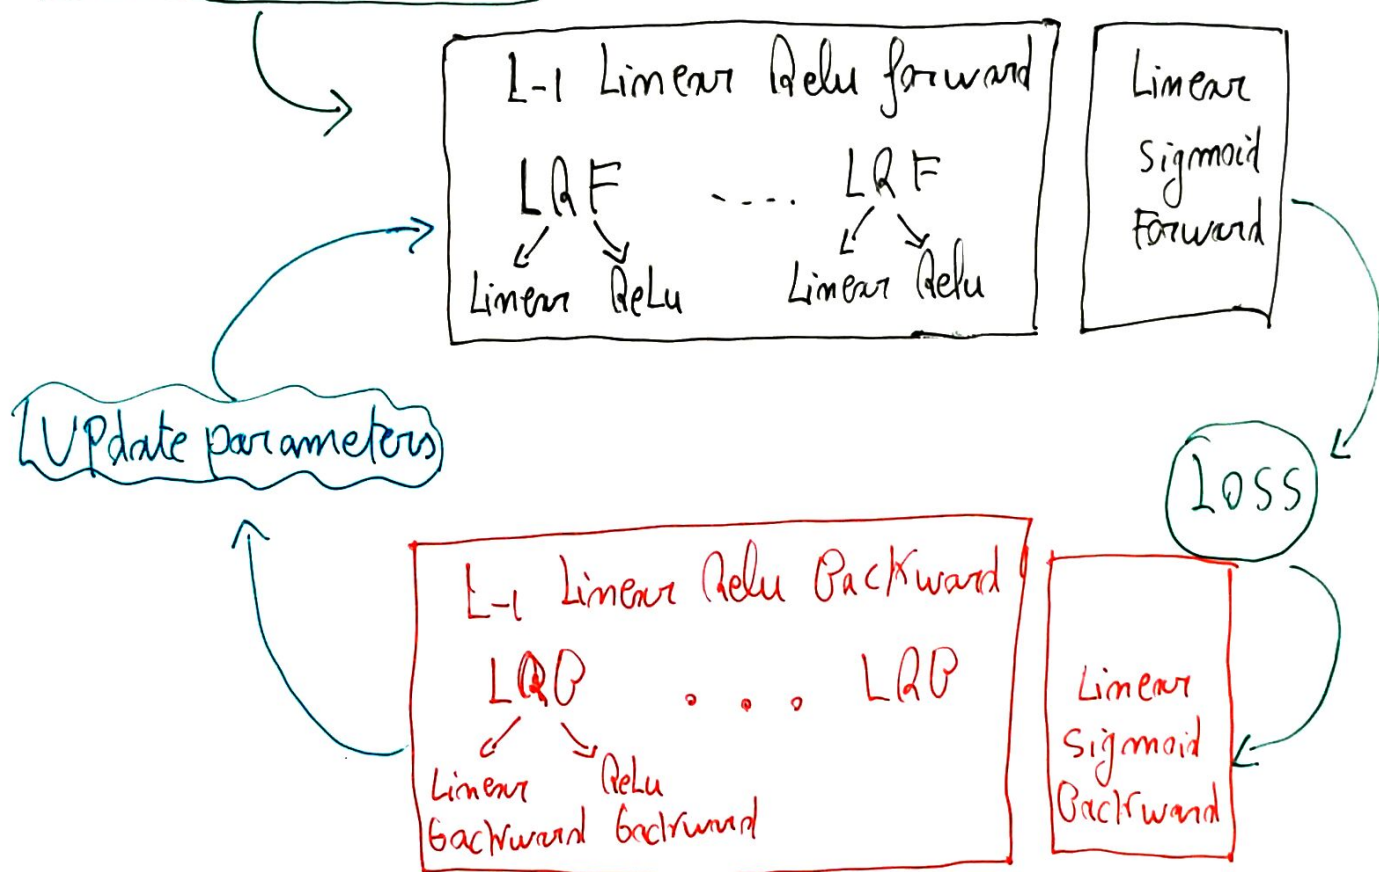 L-1 Linear Relu forward
LRF ..... LRF
Linear ReLu Linear Relu
Linear
Sigmoid
Forward
Update parameters
Loss
L-1 Linear Relu Backward
LRB . . . LRB
Linear ReLu
backward backward
Linear
Sigmoid
Backward